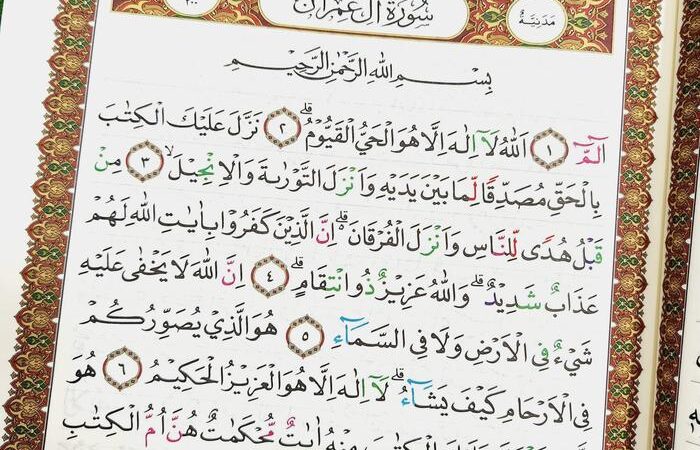 سُورَةُ اٰلِ عِمْرَانَ
مَدَنِيَّةٌ
٢٠٠
بِسْمِ اللّٰهِ الرَّحْمٰنِ الرَّحِيْمِ
الٓمّٓ ۝١ اَللّٰهُ لَآ اِلٰهَ اِلَّا هُوَ الْحَيُّ الْقَيُّوْمُۗ ۝٢ نَزَّلَ عَلَيْكَ الْكِتٰبَ
بِالْحَقِّ مُصَدِّقًا لِّمَا بَيْنَ يَدَيْهِ وَاَنْزَلَ التَّوْرٰىةَ وَالْاِنْجِيْلَۙ ۝٣ مِنْ
قَبْلُ هُدًى لِّلنَّاسِ وَاَنْزَلَ الْفُرْقَانَۗ اِنَّ الَّذِيْنَ كَفَرُوْا بِاٰيٰتِ اللّٰهِ لَهُمْ
عَذَابٌ شَدِيْدٌۗ وَاللّٰهُ عَزِيْزٌ ذُو انْتِقَامٍۗ ۝٤ اِنَّ اللّٰهَ لَا يَخْفٰى عَلَيْهِ
شَيْءٌ فِى الْاَرْضِ وَلَا فِى السَّمَاۤءِ ۝٥ هُوَ الَّذِيْ يُصَوِّرُكُمْ
فِى الْاَرْحَامِ كَيْفَ يَشَاۤءُۗ لَآ اِلٰهَ اِلَّا هُوَ الْعَزِيْزُ الْحَكِيْمُ ۝٦ هُوَ
الْكِتٰبَ مِنْهُ اٰيٰتٌ مُّحْكَمٰتٌ هُنَّ اُمُّ الْكِتٰبِ